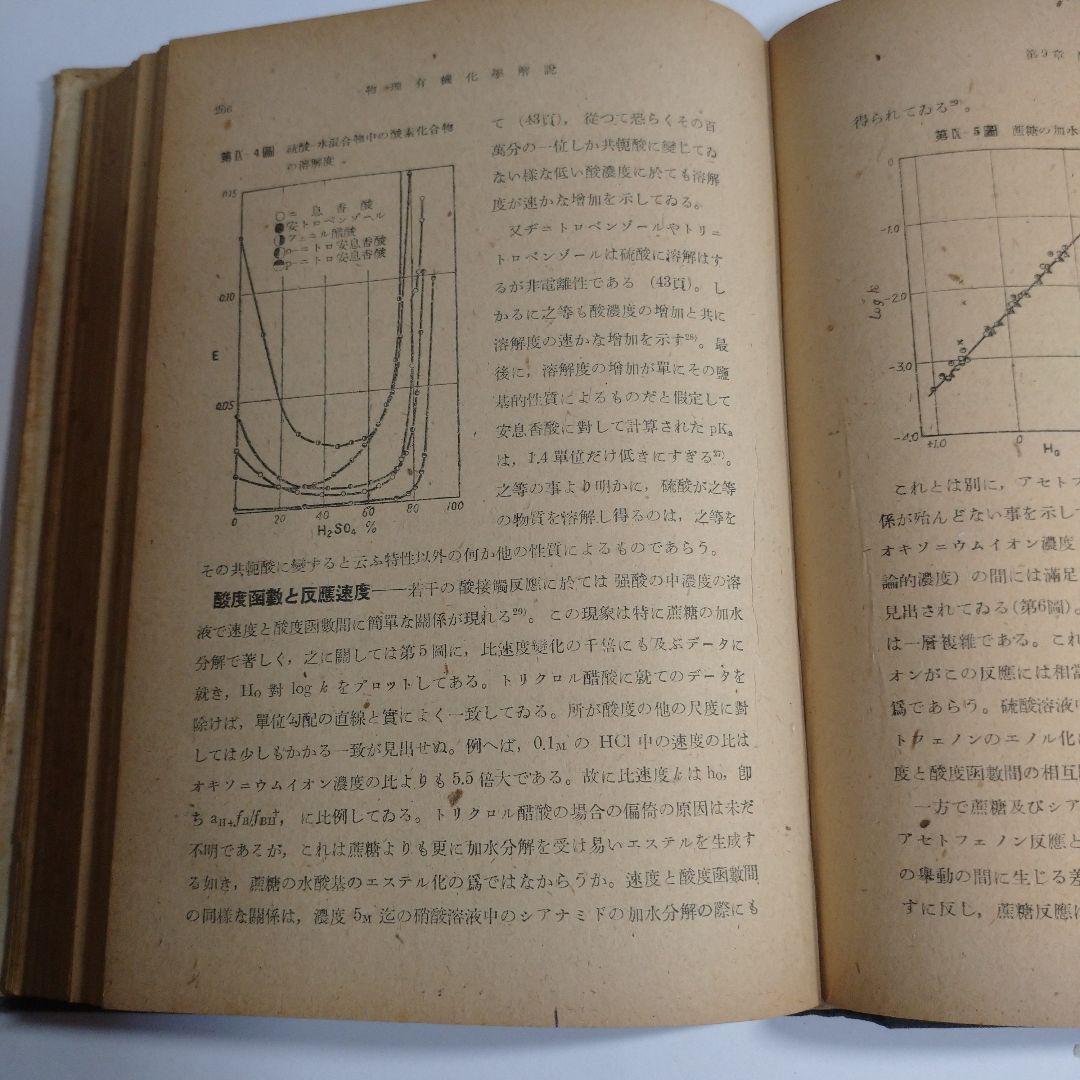 物理有機化學解說
266
第Ⅸ-4圖 硫酸-水混合物中の酸素化合物
の溶解度
0.15
○ 安息香酸
● ニトロベンゾール
フェニル醋酸
o-ニトロ安息香酸
p-ニトロ安息香酸
0.10
E
0.05
0 20 40 60 80 100
H₂SO₄ %
て (43頁), 從つて恐らくその百
萬分の一位しか共軛酸に變じてゐ
ない樣な低い酸濃度に於ても溶解
度が速かな增加を示してゐる。
又ヂニトロベンゾールやトリニ
トロベンゾールは硫酸に溶解はす
るが非電離性である (43頁)。し
かるに之等も酸濃度の增加と共に
溶解度の速かな增加を示す²⁸⁾。最
後に, 溶解度の增加が單にその鹽
基的性質によるものだと假定して
安息香酸に對して計算された pKₐ
は, 1.4 單位だけ低きにすぎる²⁷⁾。
之等の事より明かに, 硫酸が之等
の物質を溶解し得るのは, 之等を
その共軛酸に變すると云ふ特性以外の何か他の性質によるものであらう。
酸度函數と反應速度——若干の酸接觸反應に於ては 强酸の中濃度の溶
液で速度と酸度函數間に簡單な關係が現れる²⁹⁾。この現象は特に蔗糖の加水
分解で著しく, 之に關しては第5圖に, 比速度變化の千倍にも及ぶデータに
就き, H₀ 對 log k をプロットしてある。トリクロル醋酸に就てのデータを
除けば, 單位勾配の直線と實によく一致してゐる。所が酸度の他の尺度に對
しては少しもかかる一致が見出せぬ。例へば, 0.1M の HCl 中の速度の比は
オキソニウムイオン濃度の比よりも 5.5 倍大である。故に比速度 k は h₀, 卽
ち a_H+ f_B/f_BH+, に比例してゐる。トリクロル醋酸の場合の偏倚の原因は未だ
不明であるが, これは蔗糖よりも更に加水分解を受け易いエステルを生成す
る如き, 蔗糖の水酸基のエステル化の爲ではなからうか。速度と酸度函數間
の同樣な關係は, 濃度 5M 迄の硝酸溶液中のシアナミドの加水分解の際にも
第9章
得られてゐる²⁹⁾。
第Ⅸ-5圖 蔗糖の加水
0
-1.0
Log k
-2.0
-3.0
-4.0
+1.0 0
H₀
これとは別に, アセトフ
係が殆んどない事を示して
オキソニウムイオン濃度
論的濃度) の間には滿足
見出されてゐる(第6圖)。
は一層複雜である。これ
オンがこの反應には相當
爲であらう。硫酸溶液
トフェノンのエノル化
度と酸度函數間の相互
一方で蔗糖及びシア
アセトフェノン反應と
の擧動の間に生じる差
すに反し, 蔗糖反應は